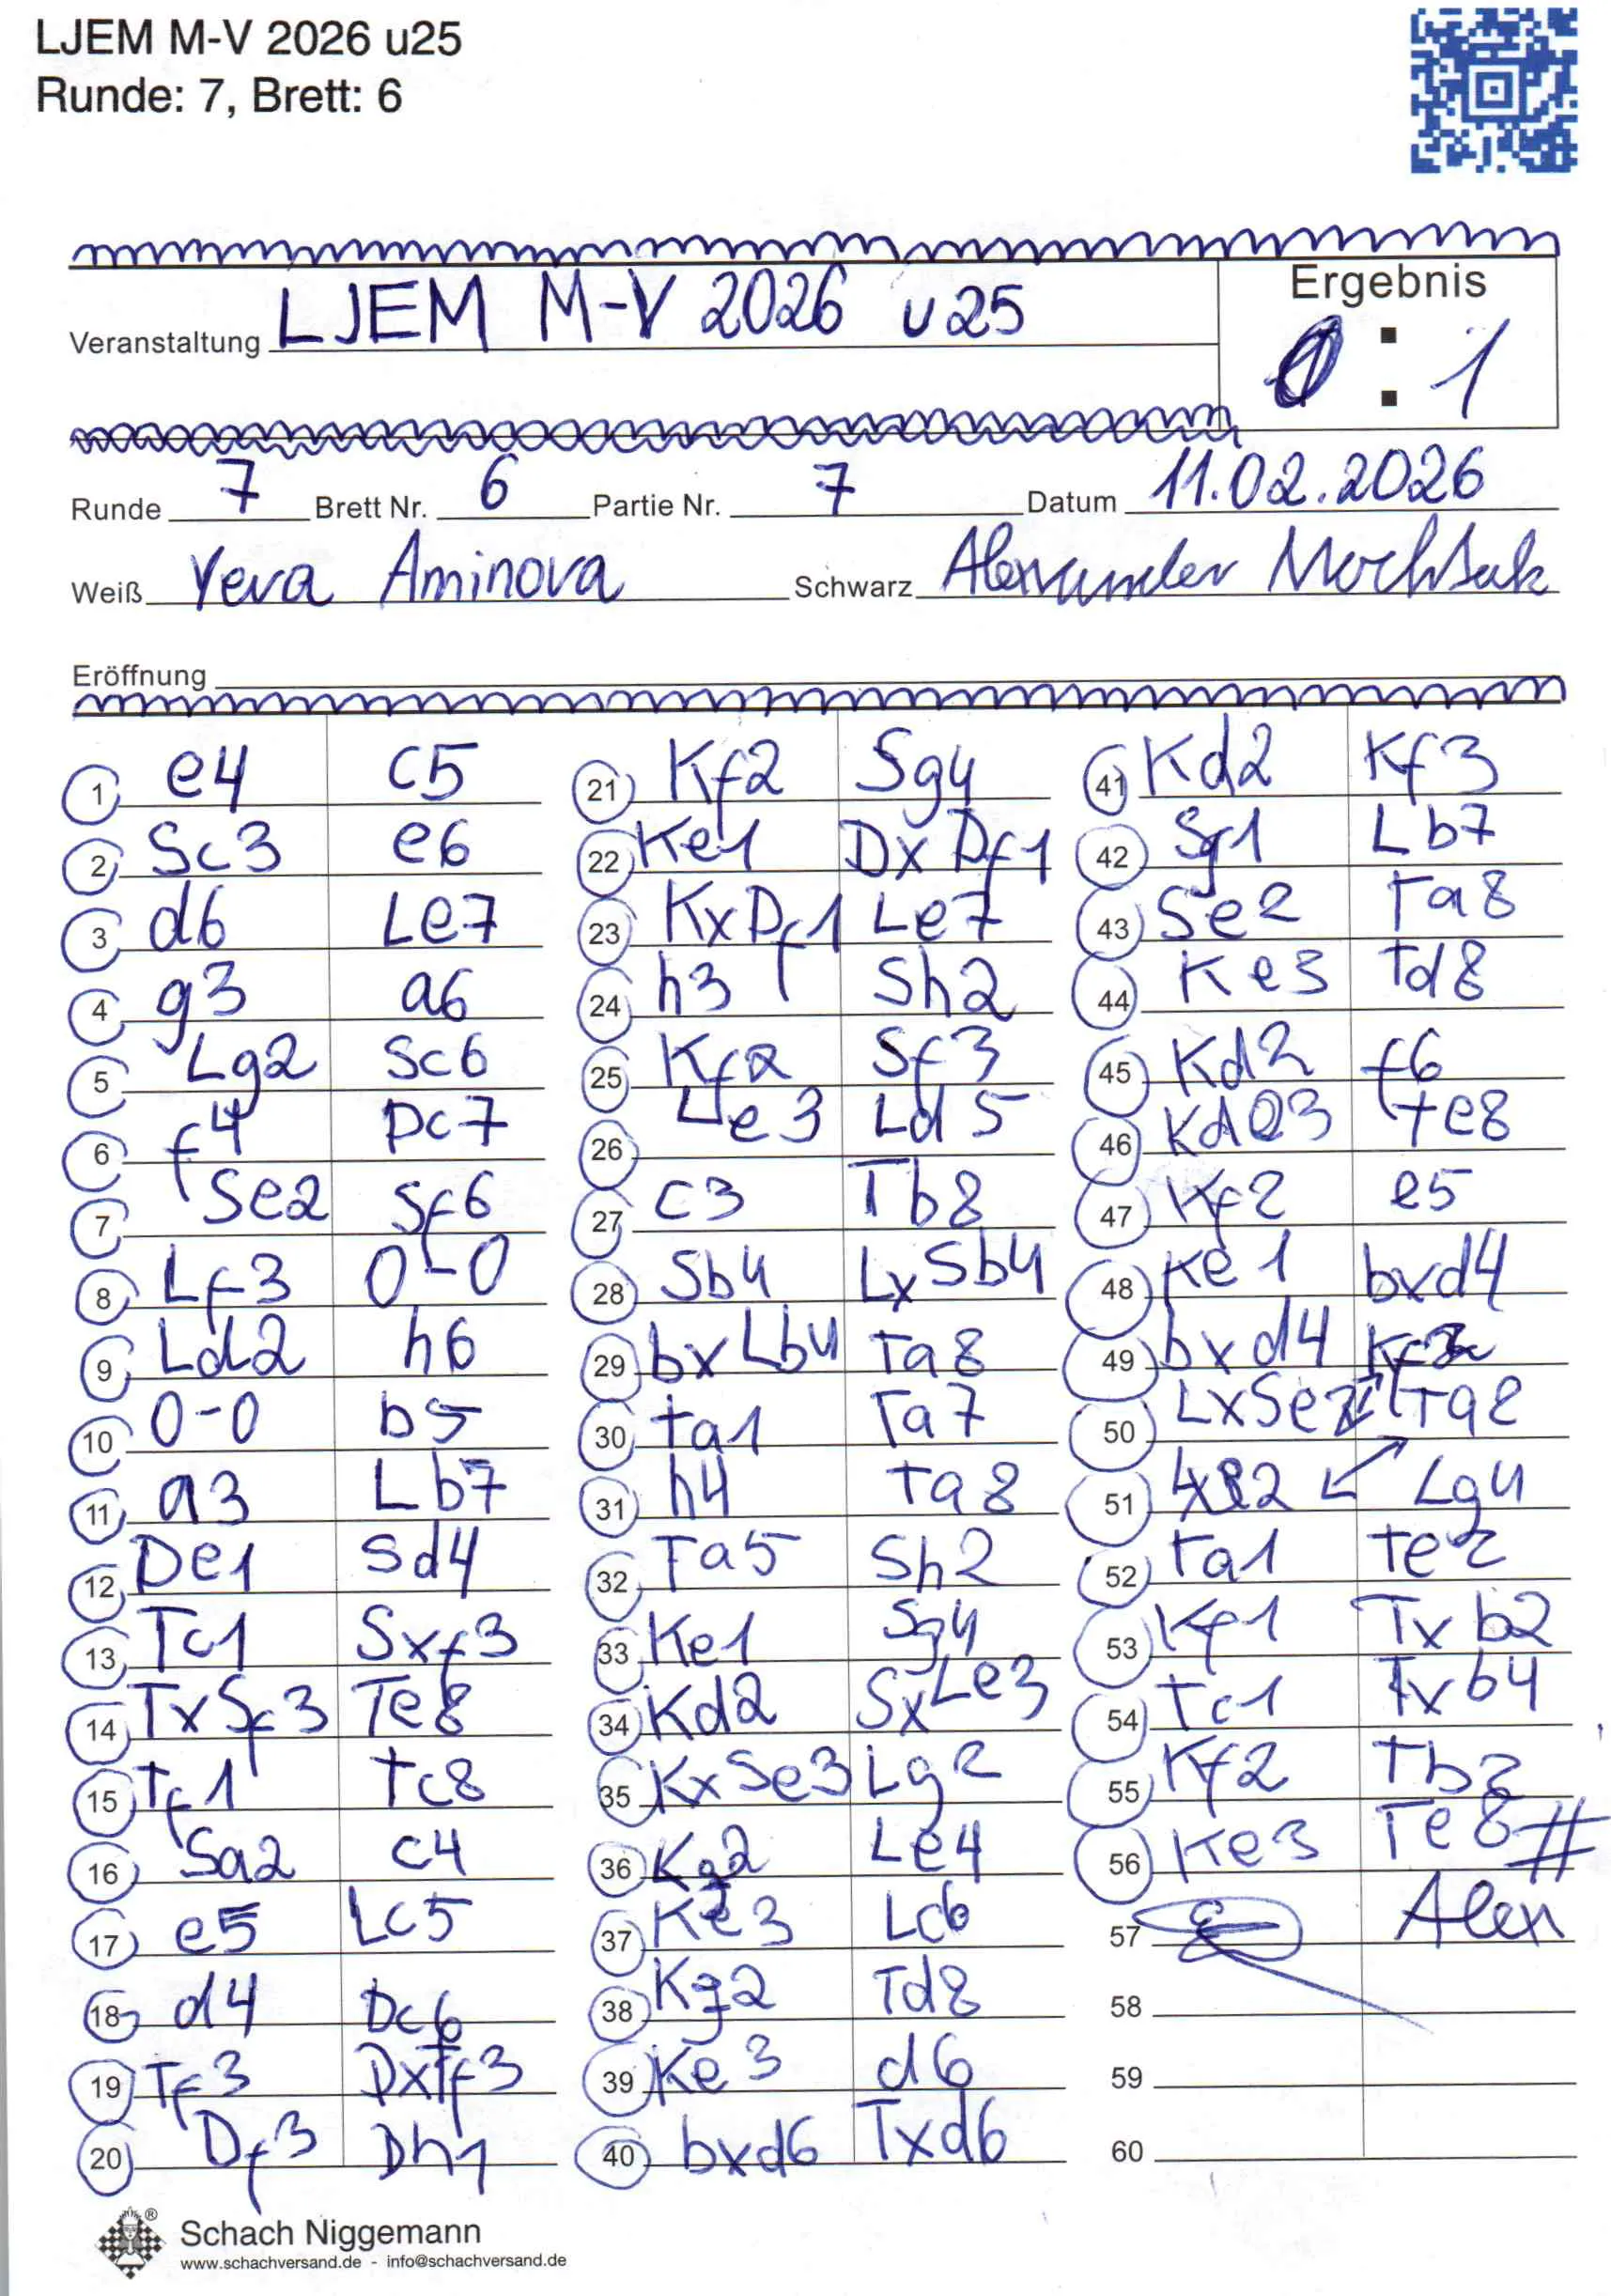 LJEM M-V 2026 u25
Runde: 7, Brett: 6
Veranstaltung LJEM M-V 2026 u25
Ergebnis
0 : 1
Runde 7 Brett Nr. 6 Partie Nr. 7 Datum 11.02.2026
Weiß Yeva Aminova Schwarz Alexander
Eröffnung
1 e4 c5
2 Sc3 e6
3 d6 Le7
4 g3 a6
5 Lg2 Sc6
6 f4 Dc7
7 Se2 Sf6
8 Lf3 0-0
9 Ld2 h6
10 0-0 b5
11 a3 Lb7
12 De1 Sd4
13 Tc1 Sxf3
14 TxSf3 Te8
15 Tf1 Tc8
16 Sa2 c4
17 e5 Lc5
18 d4 Dc6
19 Tf3 DxTf3
20 Df3 Dh1
21 Kf2 Sg4
22 Ke1 DxDf1
23 KxDf1 Le7
24 h3 Sh2
25 Kf2 Sf3
26 Le3 Ld5
27 c3 Tb8
28 Sb4 LxSb4
29 bxLb4 Ta8
30 Ta1 Ta7
31 h4 Ta8
32 Ta5 Sh2
33 Ke1 Sg4
34 Kd2 SxLe3
35 KxSe3 Lg2
36 Kg2 Le4
37 Ke3 Lc6
38 Kg2 Td8
39 Ke3 d6
40 bxd6 Txd6
41 Kd2 Kf3
42 Sg1 Lb7
43 Se2 Ta8
44 Ke3 Td8
45 Kd2 f6
46 Te8
47 Kf2 e5
48 Ke1 bxd4
49 bxd4
50 LxSe2
51 Lg4
52 Ta1 Te2
53 Kf1 Txb2
54 Tc1 Txb4
55 Kf2 Tb2
56 Ke3 Te8#
57 Alex
58
59
60
Schach Niggemann
www.schachversand.de - info@schachversand.de